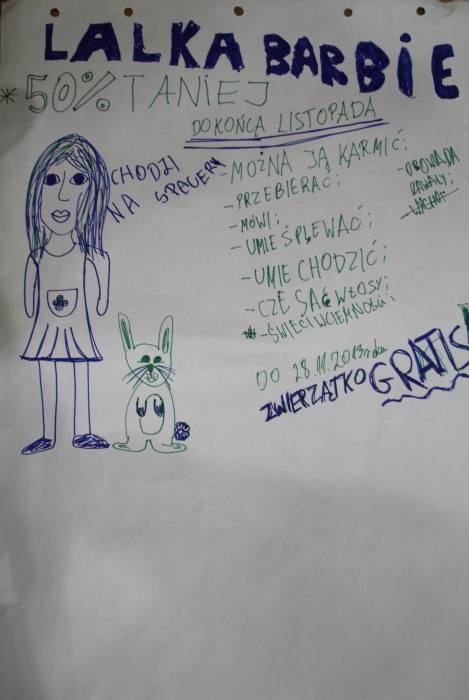 LALKA BARBIE
*50% TANIEJ
DO KOŃCA LISTOPADA
CHODZI
NA SPACERY
-MOŻNA JĄ KARMIĆ;
-PRZEBIERAĆ;
-MÓWI;
-UMIE ŚPIEWAĆ;
-UMIE CHODZIĆ;
-CZESAĆ WŁOSY;
*-ŚWIECI W CIEMNOŚCI;
-OPOWIADA
KAWAŁY;
DO 28.11.2013 roku
ZWIERZĄTKO GRATIS